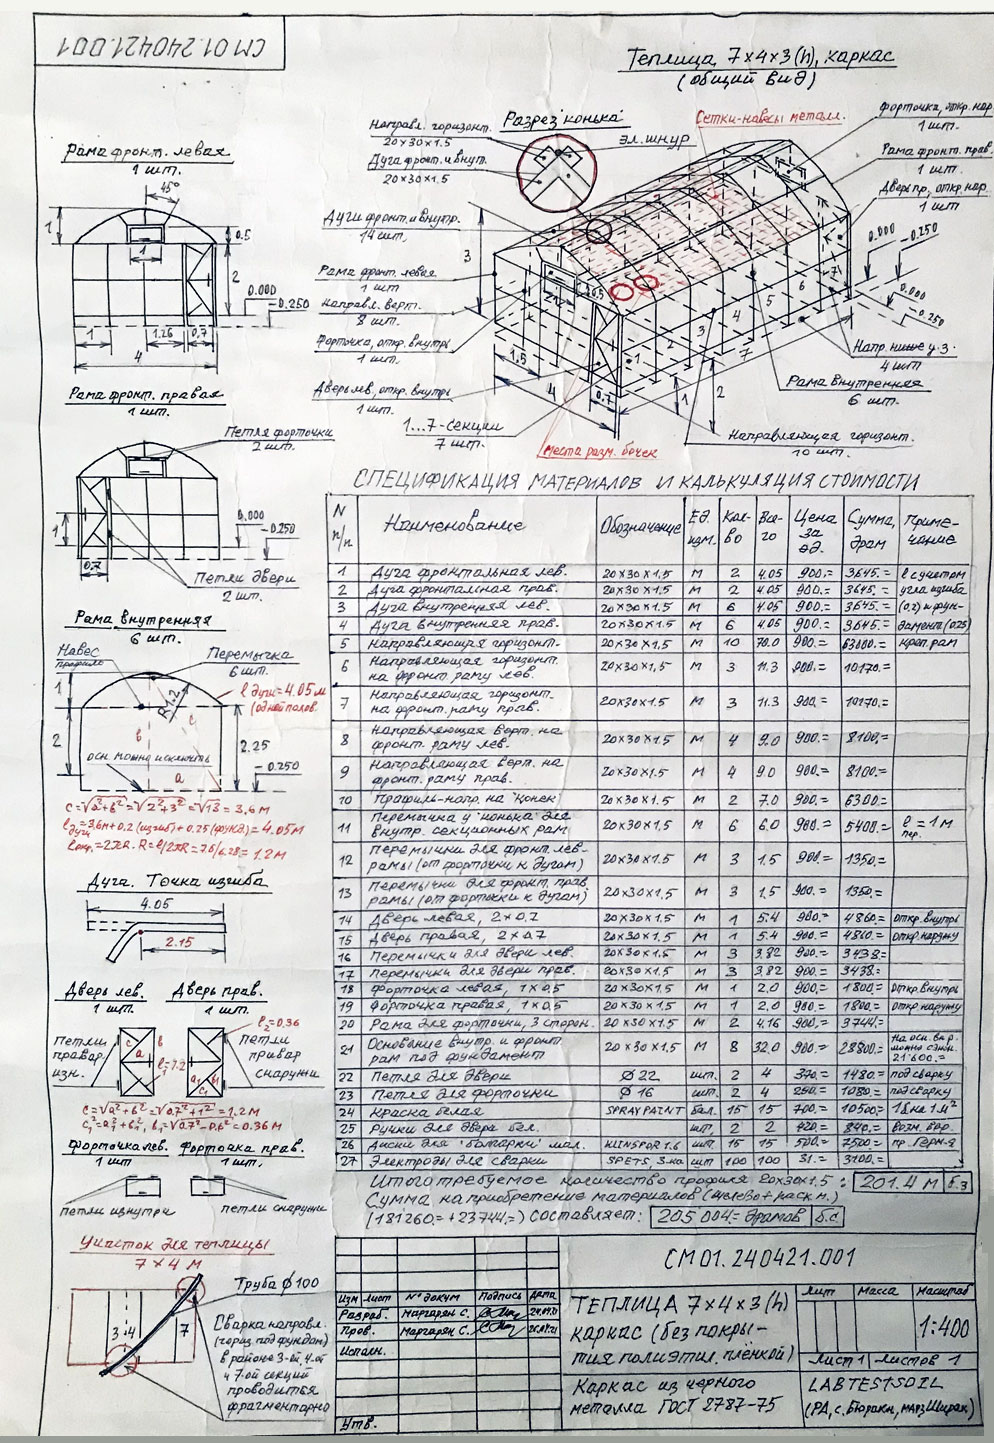 СМ 01.240421.001
Теплица 7×4×3(h), каркас
(общий вид)
Рама фронт. левая
1 шт.
45°
1
1
0.5
2
0.000
-0.250
1
1.26
0.7
4
Рама фронт. правая
1 шт.
Петля форточки
2 шт.
1
0.000
-0.250
0.7
Петли двери
2 шт.
Рама внутренняя
6 шт.
Навес
профиль
Перемычка
6 шт.
1
R1.2
ℓ дуги=4.05 м
(одной полов.
с
в
2
2.25
-0.250
осн. можно исключить
а
с=√а²+в²=√2²+3²=√13=3,6 м
ℓ дуги=3,6м+0,2(изгиб)+0.25(фунд)=4.05м
Дуга. Точка изгиба
4.05
2.15
Дверь лев.
1 шт.
Дверь прав.
1 шт.
Петли
привар.
изн.
ℓ₂=0.36
петли
привар
снаружи
с=√а²+в²=√0.7²+1²=1.2м
Форточка лев.
1 шт
Форточка прав.
1 шт.
петли изнутри
петли снаружи
Участок для теплицы
7 × 4 м
3
4
7
Труба ф100
Сварка направл.
(гориз. под фундам)
в районе 3-ей, 4-ой
и 7-ой секций
проводится
фрагментарно
Разрез "конька"
Направл. горизонт.
20×30×1.5
Дуга фронт. и внут.
20×30×1.5
эл. шнур
Сетки-навесы металл.
Форточка, откр. нар.
1 шт.
Рама фронт. прав.
1 шт.
Дверь пр., откр. нар.
1 шт
0.000
-0.250
0.000
-0.250
Дуги фронт. и внутр.
14 шт.
Рама фронт. левая
1 шт
Направл. верт.
8 шт.
Форточка, откр. внутрь
1 шт.
Дверь лев, откр. внутрь
1 шт.
1...7-секции
7 шт.
3
0.5
1,5
4
0.7
1
3
4
5
6
7
7
1
2
Напр. ниже у.з.
4 шт
Рама внутренняя
6 шт.
Направляющая горизонт.
10 шт.
места разм. бочек
СПЕЦИФИКАЦИЯ МАТЕРИАЛОВ И КАЛЬКУЛЯЦИЯ СТОИМОСТИ
N п/п Наименование Обозначение Ед. изм. Кол-во Все-го Цена за ед. Сумма, драм Приме-чание
1 Дуга фронтальная лев. 20×30×1.5 м 2 4.05 900.= 3645.= ℓ с учетом
2 Дуга фронтальная прав. 20×30×1.5 м 2 4.05 900.= 3645.= угла изгиба
3 Дуга внутренняя лев. 20×30×1.5 м 6 4.05 900.= 3645.= (0,2) и фун-
4 Дуга внутренняя прав. 20×30×1.5 м 6 4.05 900.= 3645.= дамент (0.25)
5 Направляющая горизонт. 20×30×1.5 м 10 70.0 900.= 63000.= креп. рам
6 Направляющая горизонт. на фронт. раму лев. 20×30×1.5 м 3 11.3 900.= 10170.=
7 Направляющая горизонт. на фронт. раму прав. 20×30×1.5 м 3 11.3 900.= 10170.=
8 Направляющая верт. на фронт. раму лев. 20×30×1.5 м 4 9.0 900.= 8100.=
9 Направляющая верт. на фронт. раму прав. 20×30×1.5 м 4 9.0 900.= 8100.=
10 Профиль-напр. на "конек" 20×30×1.5 м 2 7.0 900.= 6300.=
11 Перемычка у "конька" для внутр. секционных рам 20×30×1.5 м 6 6.0 900.= 5400.= ℓ пер. = 1 м
12 Перемычки для фронт. лев. рамы (от форточки к дугам) 20×30×1.5 м 3 1.5 900.= 1350.=
13 Перемычки для фронт. прав. рамы (от форточки к дугам) 20×30×1.5 м 3 1.5 900.= 1350.=
14 Дверь левая, 2×0.7 20×30×1.5 м 1 5.4 900.= 4860.= откр. внутрь
15 Дверь правая, 2×0.7 20×30×1.5 м 1 5.4 900.= 4860.= откр. наружу
16 Перемычки для двери лев. 20×30×1.5 м 3 3.82 900.= 3438.=
17 Перемычки для двери прав. 20×30×1.5 м 3 3.82 900.= 3438.=
18 Форточка левая, 1×0,5 20×30×1.5 м 1 2.0 900.= 1800.= откр. внутрь
19 Форточка правая, 1×0,5 20×30×1.5 м 1 2.0 900.= 1800.= откр. наружу
20 Рама для форточки, 3 сторон. 20×30×1.5 м 2 4.16 900.= 3744.=
21 Основание внутр. и фронт. рам под фундамент 20×30×1.5 м 8 32.0 900.= 28800.= 21600.=
22 Петля для двери Ø 22 шт. 2 4 370.= 1480.= под сварку
23 Петля для форточки Ø 16 шт. 2 4 1080.= под сварку
24 Краска белая SPRAY PAINT бал. 15 15 700.= 10500.= 1б на 1 м²
25 Ручки для двери бел. шт. 2 2 420.= 840.=
26 Диски для "болгарки" мал. KLINSPOR 1.6 шт 15 15 500.= 7500.= пр. Герм-я
27 Электроды для сварки SPETS, 3-ка шт 100 100 31.= 3100.=
Итого требуемое количество профиля 20×30×1.5 : 201.4 м б.з
Сумма на приобретение материалов (железо + расх. м.)
(181260.= + 23744.=) Составляет: 205 004= драмов б.с
СМ 01.240421.001
Изм Лист № докум Подпись Дата
Разраб. Маргарян С. 24.04.21
Пров. Маргарян С. 26.04.21
Исполн.
Утв.
ТЕПЛИЦА 7×4×3(h)
каркас (без покры-
тия полиэтил. плёнкой)
Каркас из черного
металла ГОСТ 2787-75
Лит Масса Масштаб
1:400
Лист 1 Листов 1
LABTESTSOIL
(РА, с. Бюракн, марз Ширак)